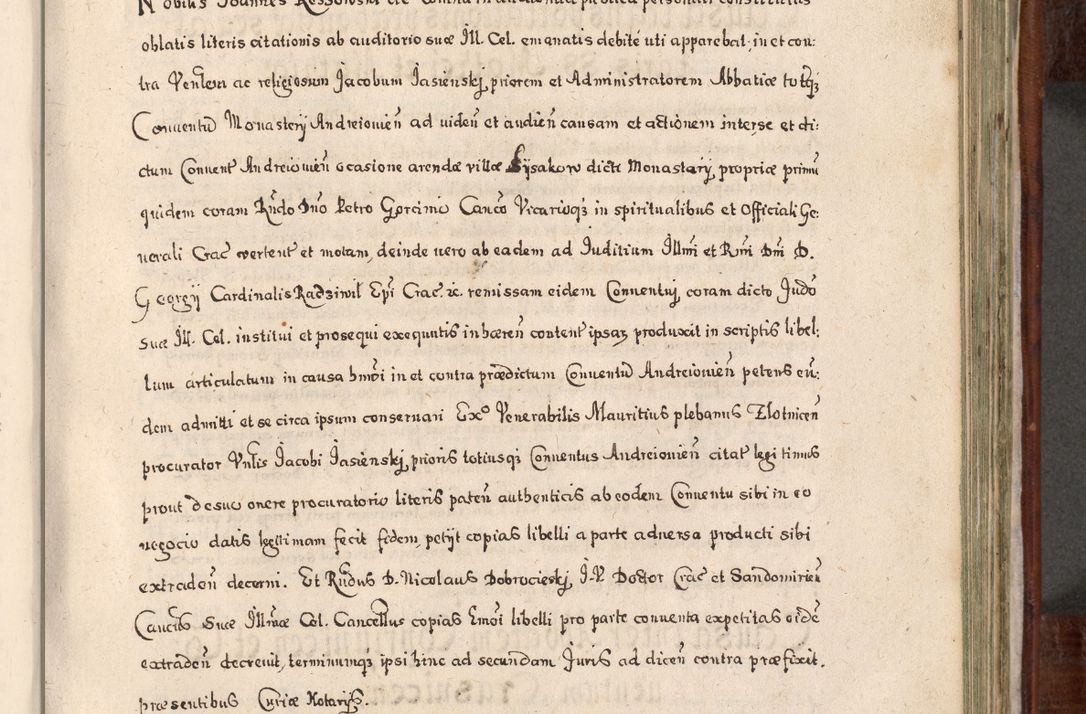 Nobilis Joannes Ressowski de
oblatis literis citationis ab auditorio suæ Ill. Cel. emanatis debité uti apparebat, in et con:
tra Venlem ac religiosum Jacobum Jasienskj, priorem et Administratorem Abbatiæ totqȝ
Conuentū Monasterij Andreiouień ad videń et audień causam et actionem interse et di:
ctum Conuent Andreiouień ocasione arendæ villæ Lysakow dicti Monastarij, propriæ primū
quidem coram Rñdo Dño Petro Gorcimio Canco Vicarioqȝ in spiritualibus et Officiali Ge:
nerali Crac vertent et motam, deinde vero ab eadem ad Juditium Illmi et Rmi Dni D.
Georgij Cardinalis Radziwil Epi Crac. &c. remissam eidem Conuentuj coram dicto Judo
suæ Ill. Cel. institui et prosequi exequutis inhæreń content ipsaȝ produxit in scriptis libel:
lum articulatum in causa hmoi in et contra prædictum Conuentū Andreiouień petens eū:
dem admitti et se circa ipsum conseruari Exo Venerabilis Mauritius plebanus Zlotniceń
procurator Vnlis Jacobi Jasienskj, prioris totiusqȝ Conuentus Andreiouień citat legitimus
prout de suo onere procuratorio literis pateń authenticis ab eodem Conuentu sibi in eo
negocio datis legitimam fecit fidem, petijt copias libelli a parte aduersa producti sibi
extradeń decerni. Et Rñdus D. Nicolaus Dobrocieskj, J.V. Doctor Crac et Sandomirień
Cancus Suæ Illmæ Cel. Cancellus copias hmoi libelli pro parte conuenta expetitas eidē
extradeń decreuit, terminumqȝ ipsi hinc ad secundam Juris ad diceń contra præfixit.
præsentibus Curiæ Notarijs.